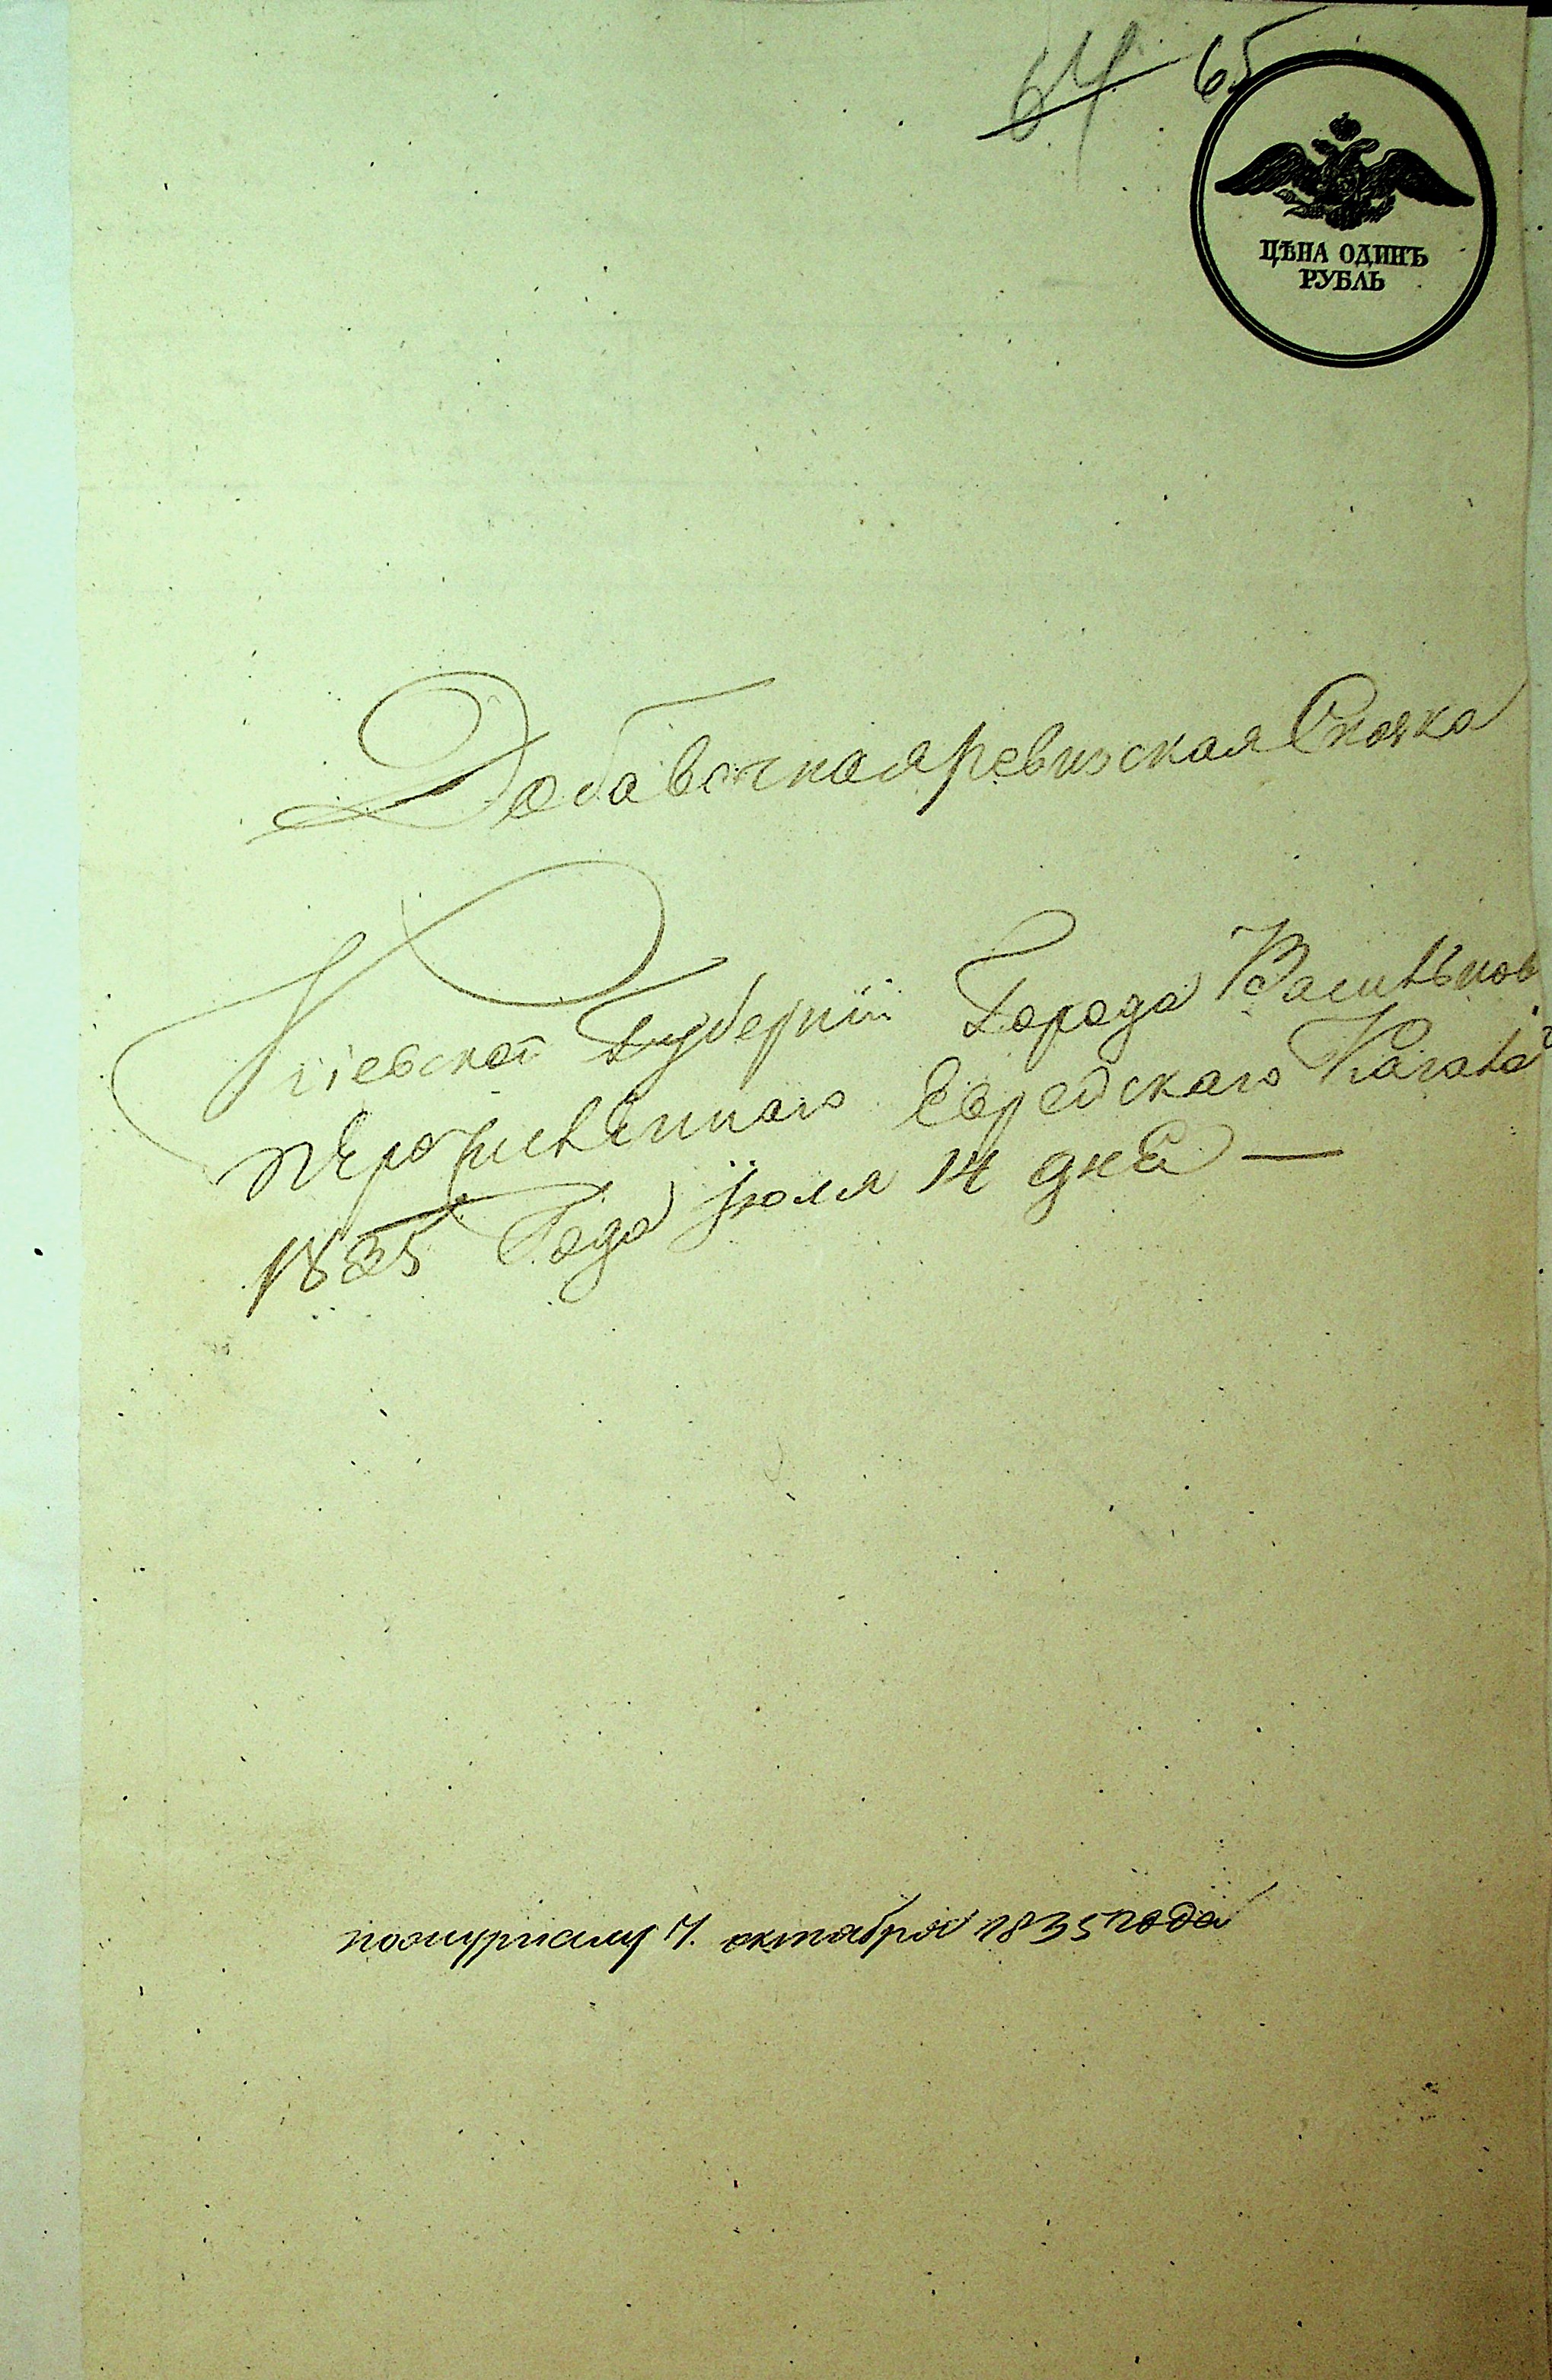 64 65
ЦѢНА ОДИНЪ
РУБЛЬ
Добавочная ревизская Сказка
Кіевской Губерніи Города Васильков
Еврейскаго Кагала
1835 Года Іюля 14 дня —
по журналу 7. октября 1835 года